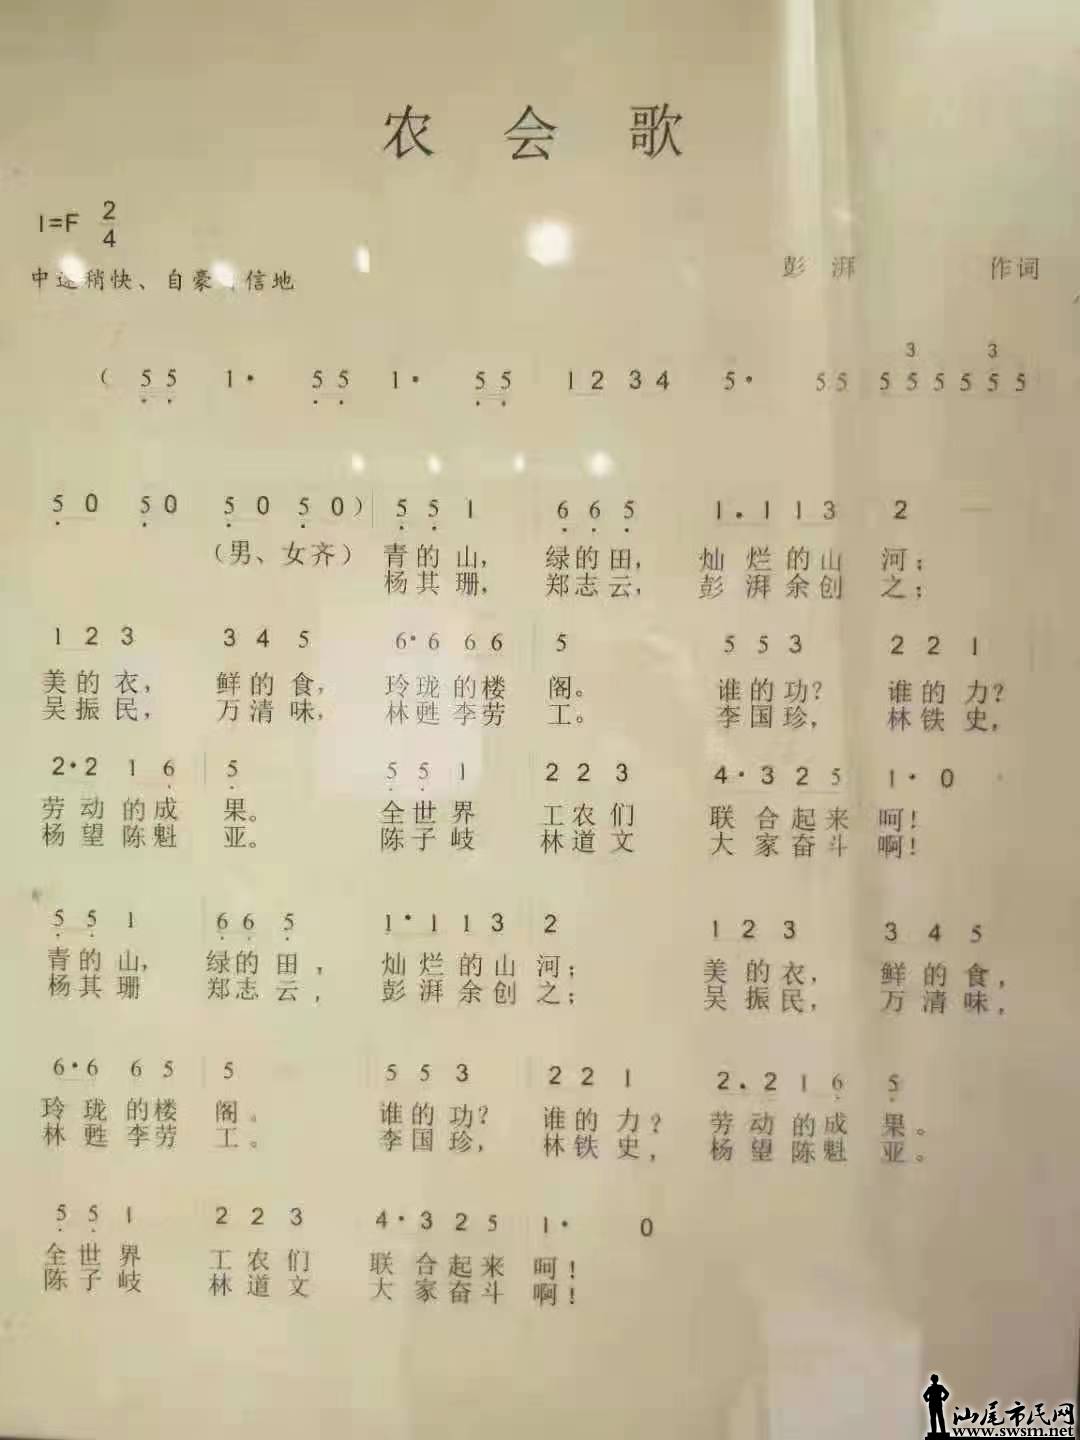 农会歌
1=F 2/4
中速稍快、自豪 信地
彭湃 作词
3 3
( 55 1· 55 1· 55 1234 5· 55 555555
50 50 50 50) 551 665 1.113 2 —
(男、女齐) 青的山, 绿的田, 灿烂的山 河;
杨其珊, 郑志云, 彭湃余创 之;
123 345 6·666 5 553 221
美的衣, 鲜的食, 玲珑的楼 阁。 谁的功? 谁的力?
吴振民, 万清味, 林甦李劳 工。 李国珍, 林铁史,
2·216 5 551 223 4·325 1·0
劳动的成 果。 全世界 工农们 联合起来 呵!
杨望陈魁 亚。 陈子岐 林道文 大家奋斗 啊!
551 665 1·113 2 123 345
青的山, 绿的田, 灿烂的山 河; 美的衣, 鲜的食,
杨其珊 郑志云, 彭湃余创 之; 吴振民, 万清味,
6·665 5 553 221 2.216 5
玲珑的楼 阁。 谁的功? 谁的力? 劳动的成 果。
林甦李劳 工。 李国珍, 林铁史, 杨望陈魁 亚。
551 223 4·325 1· 0
全世界 工农们 联合起来 呵!
陈子岐 林道文 大家奋斗 啊!
汕尾市民网
www.swsm.net